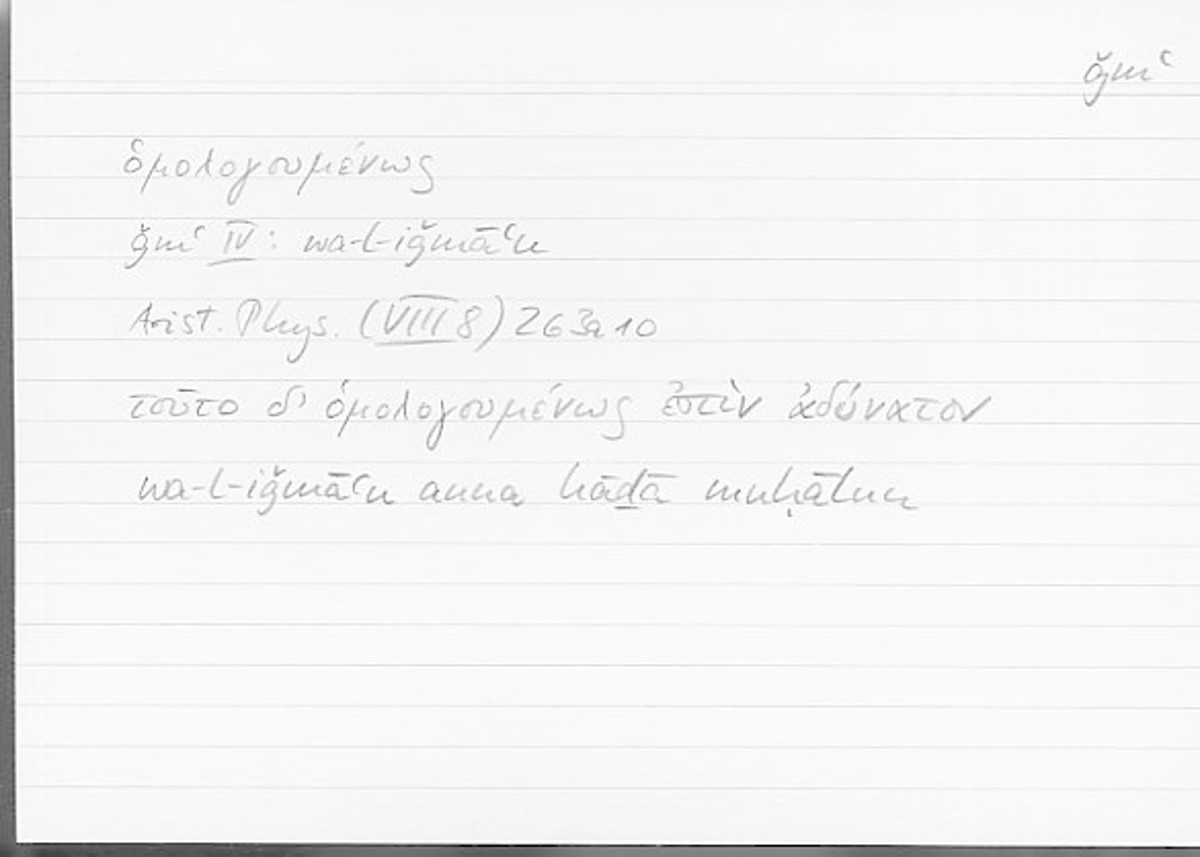 ǧmʿ
ὁμολογουμένως
ǧmʿ IV: wa-l-iǧmāʿu
Arist. Phys. (VIII 8) 263a10
τοῦτο δ' ὁμολογουμένως ἐστὶν ἀδύνατον
wa-l-iǧmāʿu anna hāḏā muḥālun